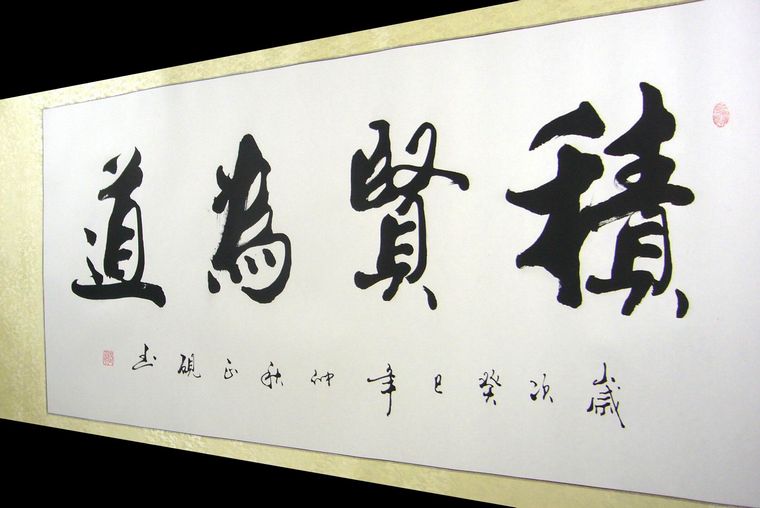 積賢為道
歲次癸巳年仲秋正硯書